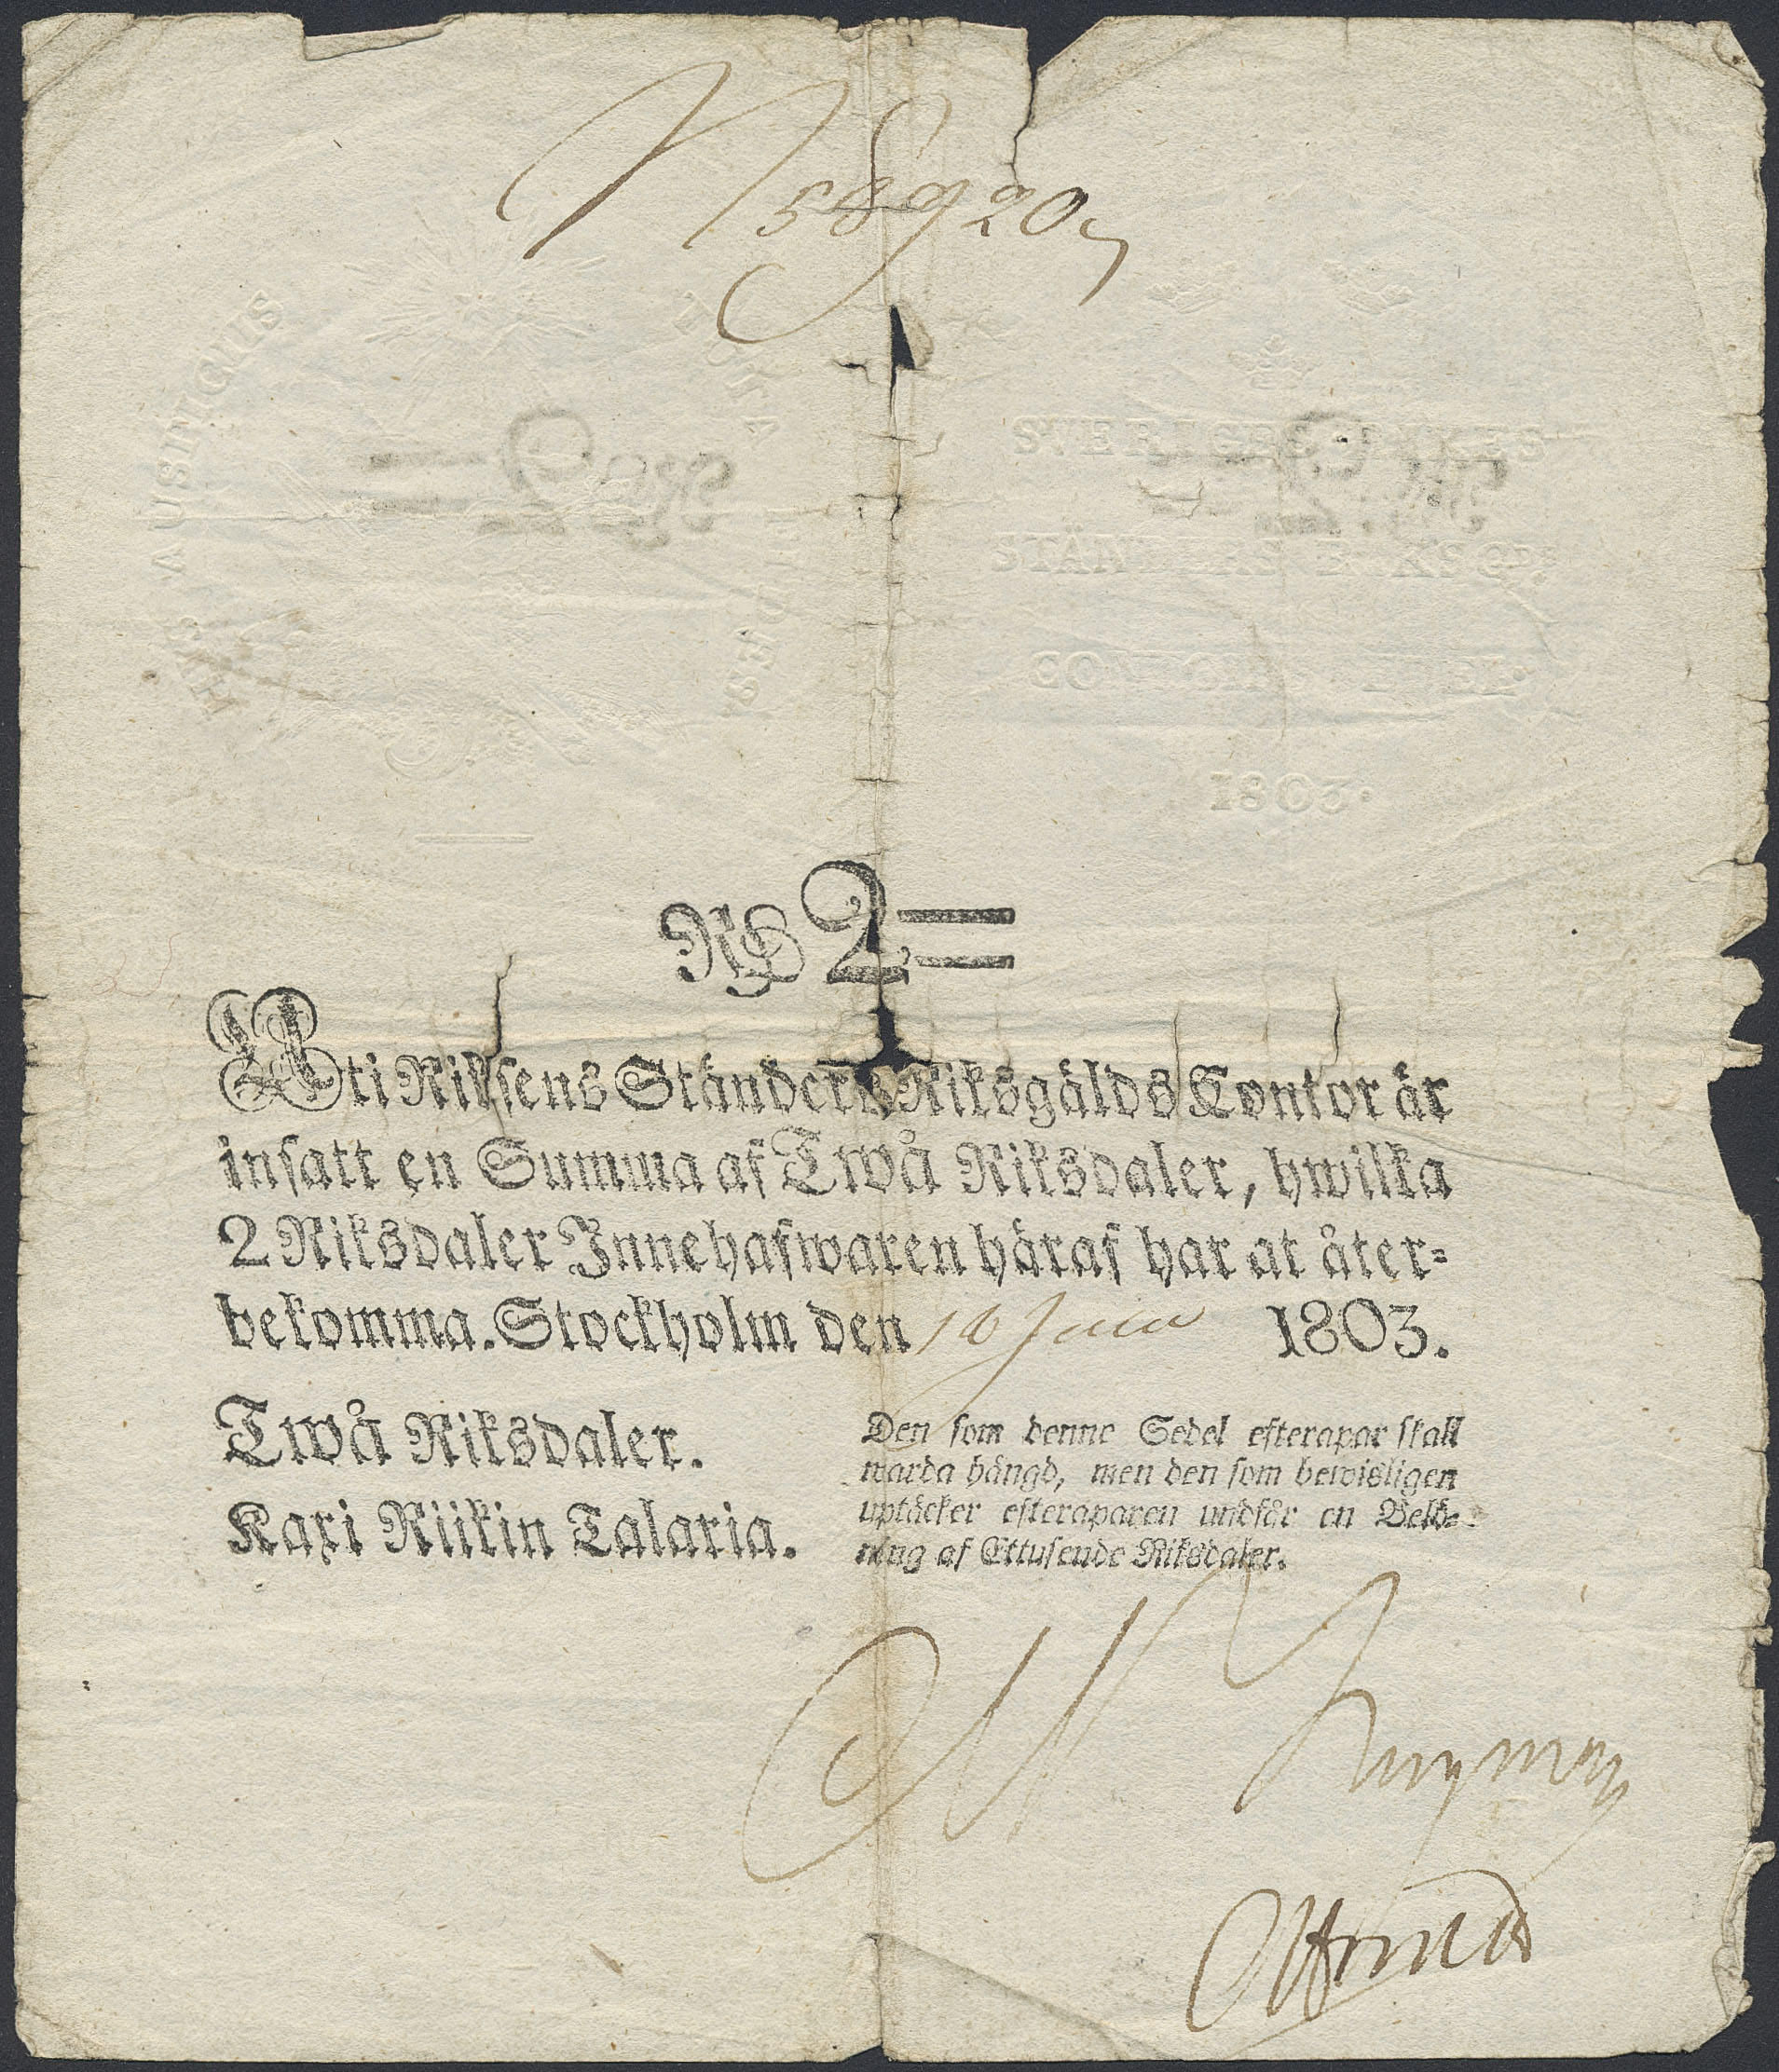 N 58920
HIS AUSPICIIS
SVERIGES RIKES
STÄNDERS RIKSGDS
1803.
RS 2=
Uti Riksens Ständers Riksgälds Contor är
insatt en Summa af Twå Riksdaler, hwilka
2 Riksdaler Innehafwaren häraf har at åter=
bekomma. Stockholm den 16 Junii 1803.
Twå Riksdaler.
Kaxi Riikin Talaria.
Den som denne Sedel efterapar skall
warda hängd, men den som bewisligen
uptäcker efteraparen undfår en Belö=
ning af Ettusende Riksdaler.